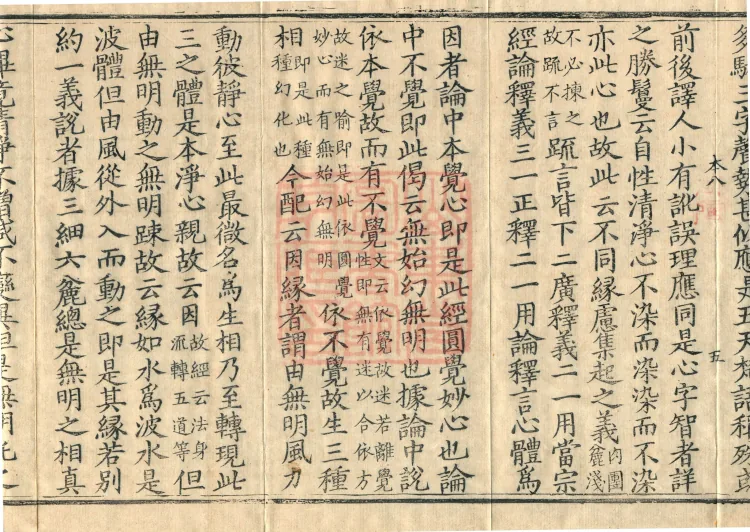 前後譯人小有訛誤理應同是心字智者詳
本八
五
之勝鬘云自性清淨心不染而染染而不染
亦此心也故此云不同緣慮集起之義肉團麤淺
不必揀之故疏不言疏言皆下二廣釋義二一用當宗
經論釋義三一正釋二一用論釋言心體爲
因者論中本覺心即是此經圓覺妙心也論
中不覺即此偈云無始幻無明也據論中說
依本覺故而有不覺文云依覺故迷若離覺性即無有迷以合依方
故迷之喻即是此依圓覺妙心而有無始幻無明依不覺故生三種
相即是此種種幻化也今配云因緣者謂由無明風力
動彼靜心至此最微名爲生相乃至轉現此
三之體是本淨心親故云因故經云法身流轉五道等但
由無明動之無明踈故云緣如水爲波水是
波體但由風從外入而動之即是其緣若別
約一義說者據三細六麤總是無明之相真